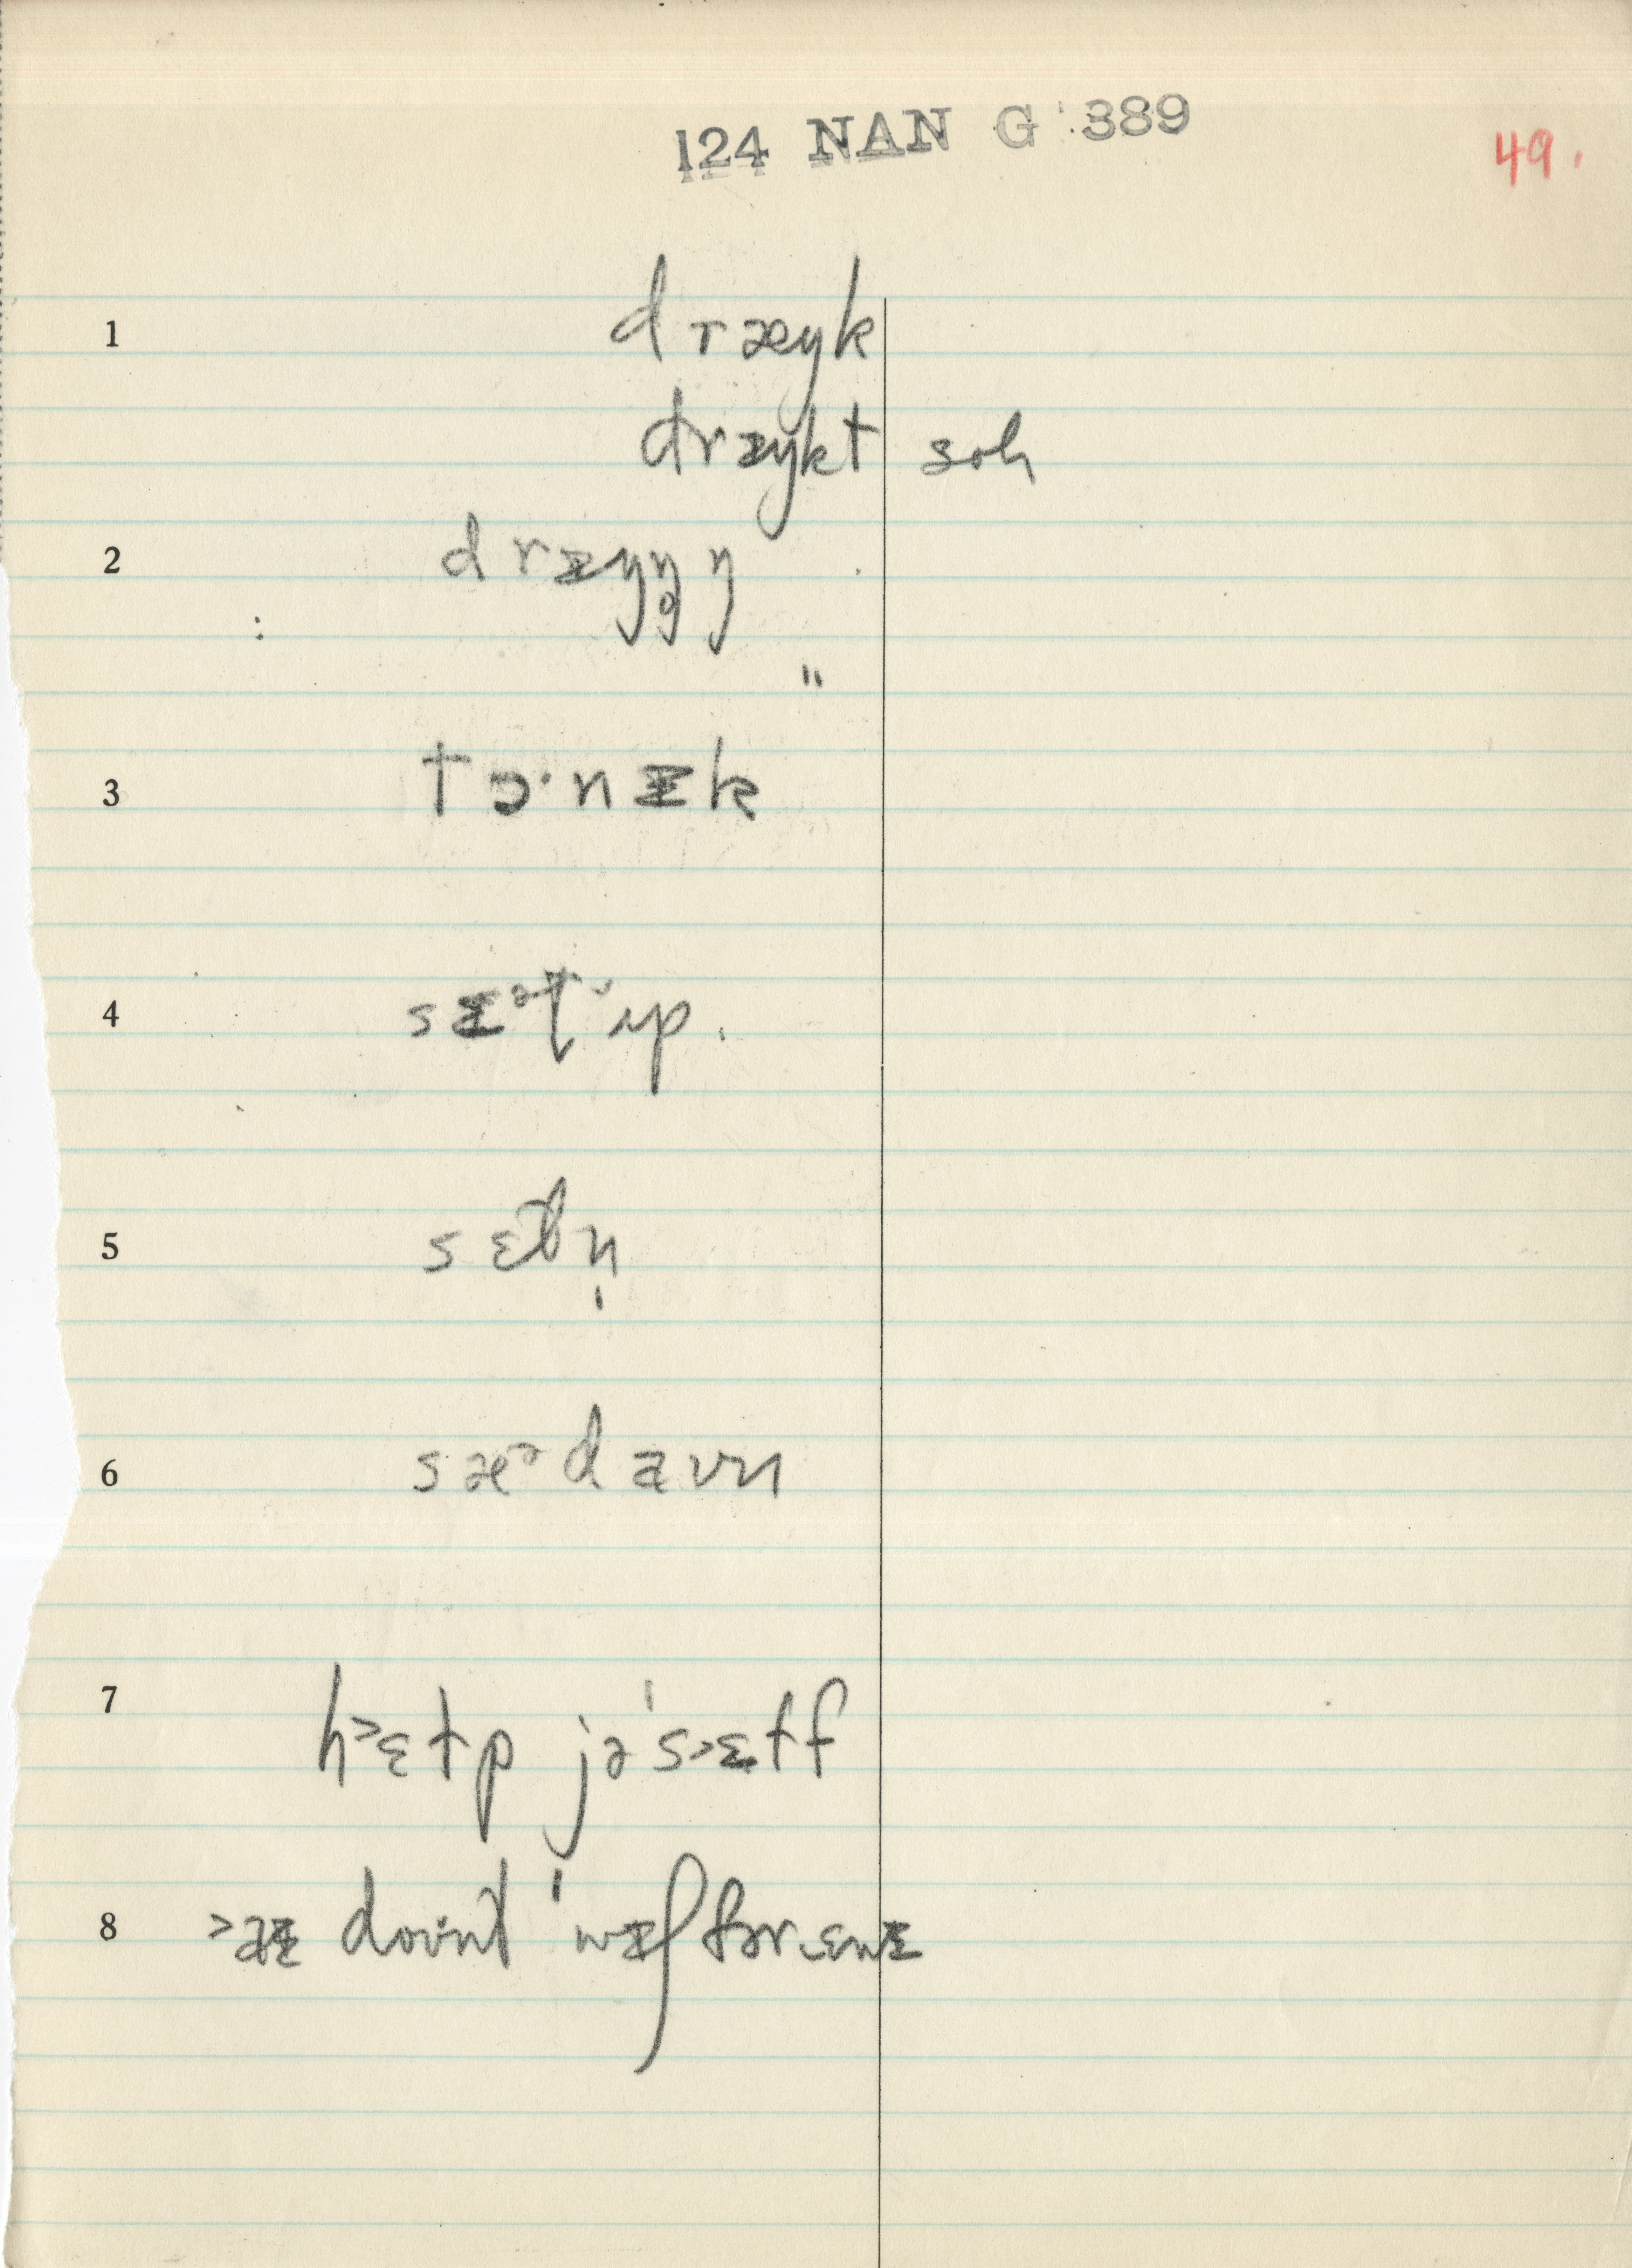 124 NAN G 389
49.
1 dræŋk
dræŋkt soh
2 dræŋŋ̥ŋ
"
3 tɔ·nɪk
4 sɪᵊt ʌp.
5 sɛt n̩
6 sæᵊ daʊn
7 h˃ɛtp jəˈs˃ɛtf
8 ˃aɪ doʊnt ˈwɪʃ fər ɛnɪ